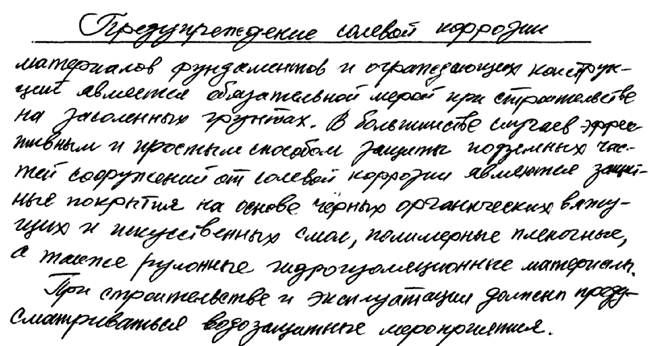 Предупреждение солевой коррозии
материалов фундаментов и ограждающих конструк-
ций является обязательной мерой при строительстве
на засоленных грунтах. В большинстве случаев эффек-
тивным и простым способом защиты подземных час-
тей сооружений от солевой коррозии являются защит-
ные покрытия на основе чёрных органических вяжу-
щих и искусственных смол, полимерные пленочные,
а также рулонные гидроизоляционные материалы.
При строительстве и эксплуатации должны преду-
сматриваться водозащитные мероприятия.